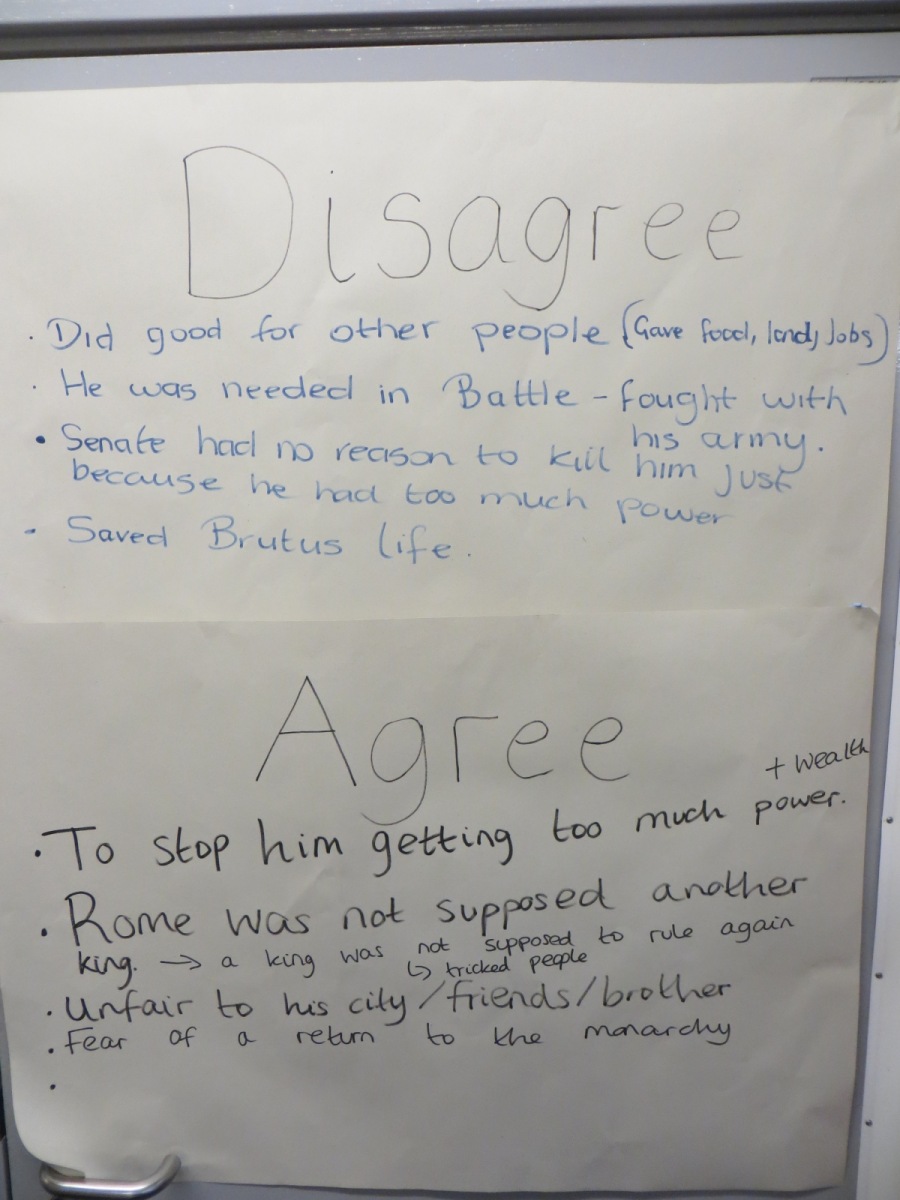 Disagree
· Did good for other people (Gave food, land, Jobs)
· He was needed in Battle - fought with
his army.
• Senate had no reason to kill him just
because he had too much power
- Saved Brutus life.
Agree
+ wealth
· To stop him getting too much power.
· Rome was not supposed another
king. → a king was not supposed to rule again
↳ tricked people
· Unfair to his city/friends/brother
· Fear of a return to the monarchy
·